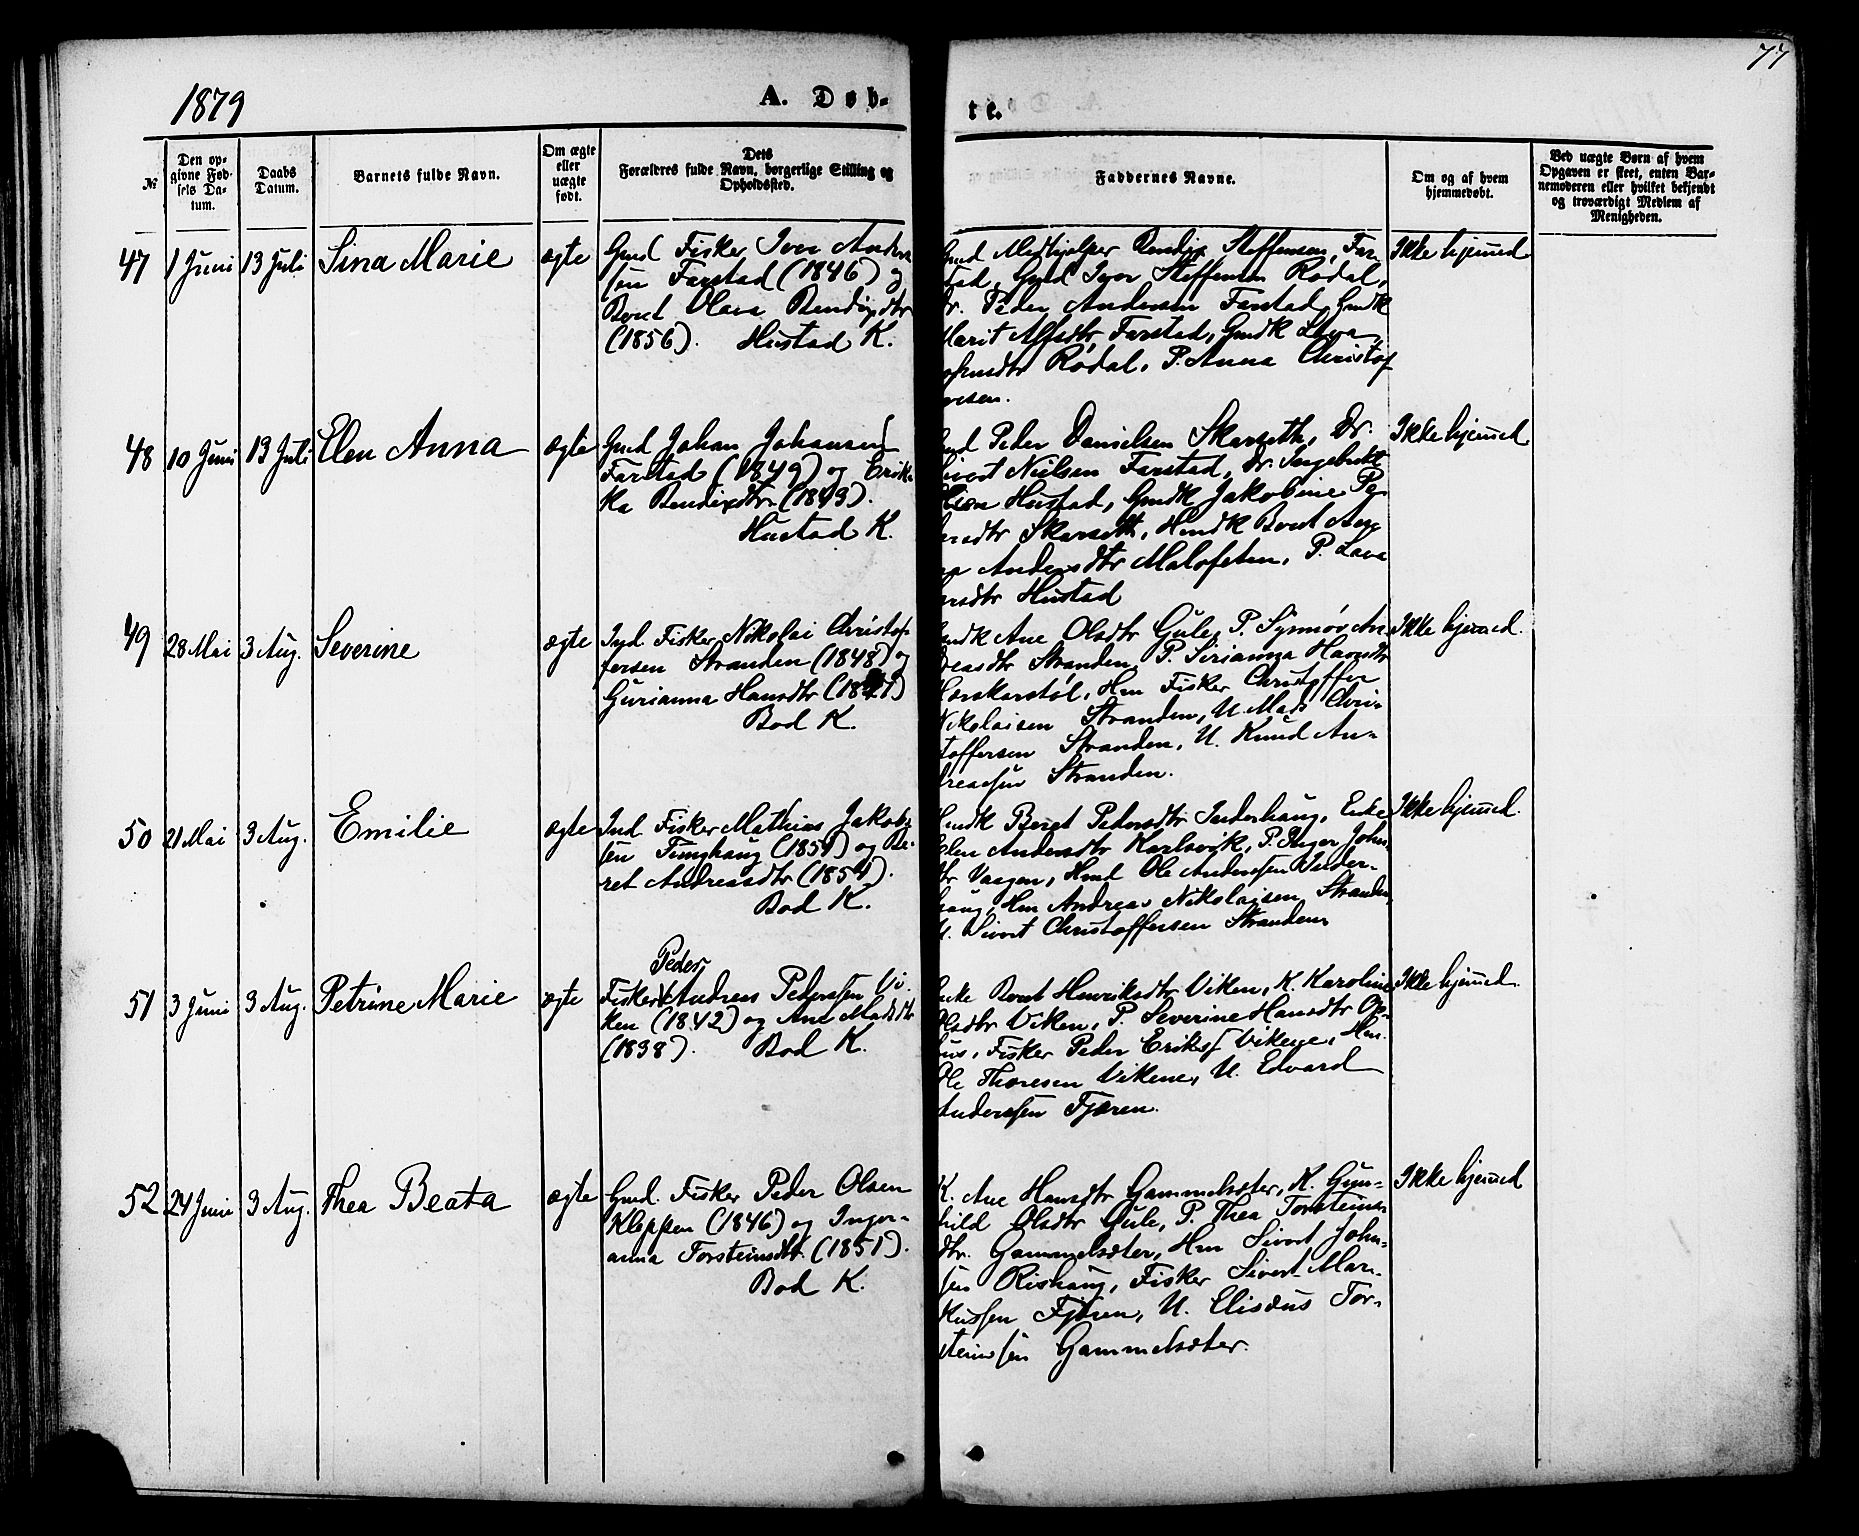 77
1879
A. Døb-
te.
№
Den op-
givne Fød-
sels Da-
tum.
Daabs
Datum.
Barnets fulde Navn.
Om ægte
eller
uægte
født.
Dets
Forældres fulde Navn, borgerlige Stilling og
Opholdssted.
Faddernes Navne.
Om og af hvem
hjemmedøbt.
Ved uægte Børn af hvem
Opgaven er skeet, enten Bar-
nemoderen eller hvilket bekjendt
og troværdigt Medlem af
Menigheden.
47 1 Juni 13 Juli Sina Marie ægte
Gmd Fisker Iver Anders
sen Farstad (1846) og
Beret Olava Bendixdtr
(1856). Hustad K.
Medhjelper Bendix Steffensen, Far-
stad, Gmd Iver Steffensen Rødal,
Dr. Peder Andersen Farstad, Gmdk
Marit Alfsdtr Farstad, Gmdk Lava
Rødal, P. Anna Christof
Ikke hjemmed
48 10 Juni 13 Juli Elen Anna ægte
Gmd Johan Johansen
Farstad (1849) og Erik-
ka Bendixdtr (1843).
Hustad K.
Peder Danielsen Skarseth, Dr.
Sivert Nielsen Farstad, Dr. Ingebrikt
Hustad, Gmdk Jakobine Pe-
dersdtr Skarseth, Hmdk Beret An-
Andersdtr Malefeten, P. Lava
Hustad
Ikke hjemmed
49 28 Mai 3 Aug. Severine ægte
Ind. Fisker Nikolai Christof
fersen Stranden (1848) og
Gurianna Hansdtr (1841)
Bod K.
Ane Olsdtr Gule, P. Synnøv An-
dreasdtr Stranden, P. Sirianna Hansdtr
Hm Fisker Christoffer
Nikolaisen Stranden, U. Mads Chri-
stoffersen Stranden, U. Knud An-
dreasen Stranden.
Ikke hjemmed.
50 21 Mai 3 Aug. Emilie ægte
Ind Fisker Mathias Jakob-
sen Tunghaug (1851) og Be-
ret Andreasdtr (1854).
Bod K.
Hmdk Beret Pedersdtr Inderhaug, Enke
Elen Andersdtr Karlsvik, P. Inger Johns
dtr Vaagen, Hmd Ole Anderssen Inder-
haug, Hm Andreas Nikolaisen Stranden,
U. Sivert Christoffersen Stranden
Ikke hjemmed.
51 3 Juni 3 Aug. Petrine Marie ægte
Peder
Fisker Andreas Pederssen Vi-
ken (1842) og Ane Madsdtr
(1838). Bod K.
Enke Beret Henriksdtr Viken, K. Karoline
Olsdtr Viken, P. Severine Hansdtr Op-
hus, Fisker Peder Eriks. Vikene, Hm
Ole Thoresen Vikene, U. Edvard
Anderssen Fjøren.
Ikke hjemmed.
52 24 Juni 3 Aug. Thea Beata ægte
Gmd. Fisker Peder Olsen
Kleppen (1846) og Inger-
anna Torsteinsdtr. (1851).
Bod K.
K. Ane Hansdtr Gammelsæter, K. Gun-
hild Olsdtr Gule, P. Thea Torsteins-
dtr. Gammelsæter, Hm Sivert John-
sen Rishaug, Fisker Sivert Mar-
kussen Fjøren, U. Elisæus Tor-
steinssen Gammelsæter.
Ikke hjemmed